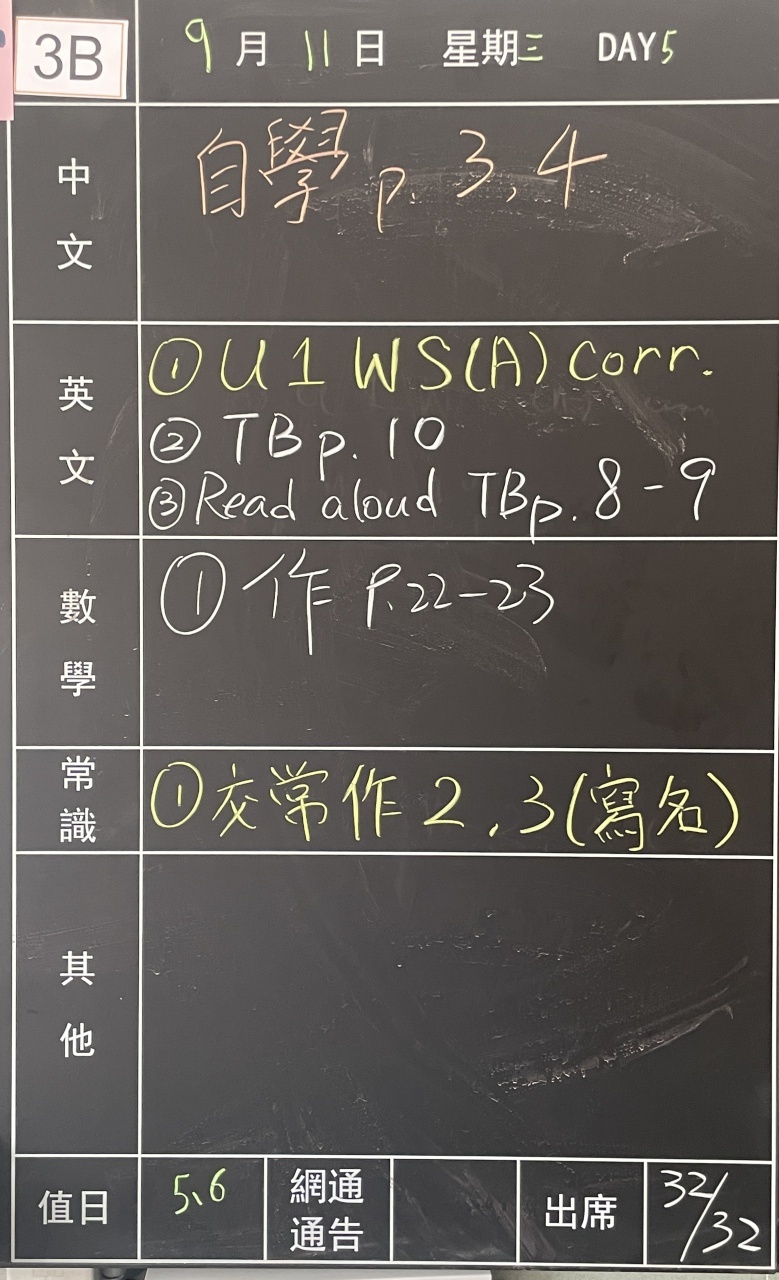 3B
9月11日 星期三 DAY5
中文
自學 p. 3, 4
英文
① U1 WS(A) Corr.
② TB p. 10
③ Read aloud TB p. 8-9
數學
① 作 P.22-23
常識
① 交常作 2, 3(寫名)
其他
值日 5、6 網通通告 出席 32/32